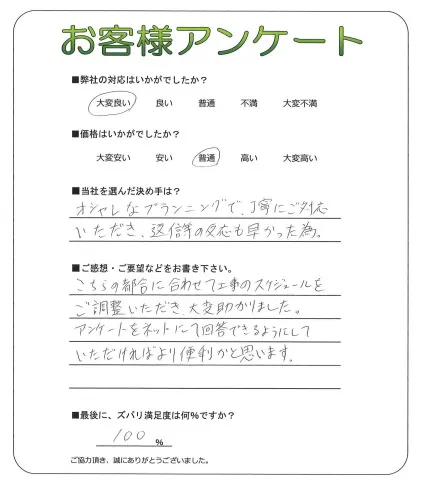 お客様アンケート
■弊社の対応はいかがでしたか？
大変良い 良い 普通 不満 大変不満
■価格はいかがでしたか？
大変安い 安い 普通 高い 大変高い
■当社を選んだ決め手は？
オシャレなプランニングで、丁寧にご対応
いただき、返信等の反応も早かった為。
■ご感想・ご要望などをお書き下さい。
こちらの都合に合わせて工事のスケジュールを
ご調整いただき、大変助かりました。
アンケートをネットにて回答できるようにして
いただければより便利かと思います。
■最後に、ズバリ満足度は何%ですか？
100 %
ご協力頂き、誠にありがとうございました。